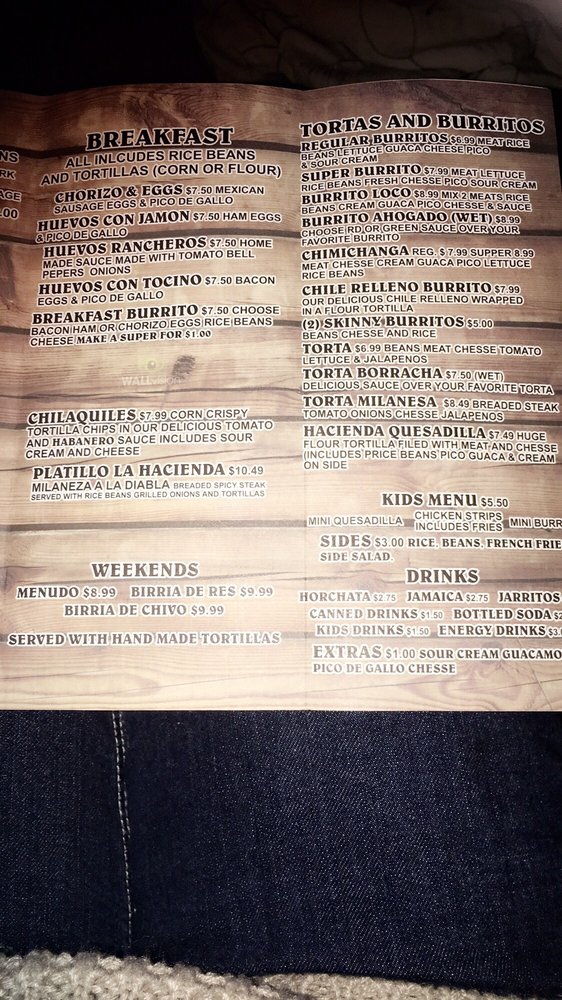 NS
RK
AGE
.00
BREAKFAST
ALL INLCUDES RICE BEANS
AND TORTILLAS (CORN OR FLOUR)
CHORIZO & EGGS $7.50 MEXICAN
SAUSAGE EGGS & PICO DE GALLO
HUEVOS CON JAMON $7.50 HAM EGGS
& PICO DE GALLO
HUEVOS RANCHEROS $7.50 HOME
MADE SAUCE MADE WITH TOMATO BELL
PEPERS ONIONS
HUEVOS CON TOCINO $7.50 BACON
EGGS & PICO DE GALLO
BREAKFAST BURRITO $7.50 CHOOSE
BACON HAM OR CHORIZO EGGS RICE BEANS
CHEESE MAKE A SUPER FOR $1.00
WALLvision
CHILAQUILES $7.99 CORN CRISPY
TORTILLA CHIPS IN OUR DELICIOUS TOMATO
AND HABANERO SAUCE INCLUDES SOUR
CREAM AND CHEESE
PLATILLO LA HACIENDA $10.49
MILANEZA A LA DIABLA BREADED SPICY STEAK
SERVED WITH RICE BEANS GRILLED ONIONS AND TORTILLAS
WEEKENDS
MENUDO $8.99 BIRRIA DE RES $9.99
BIRRIA DE CHIVO $9.99
SERVED WITH HAND MADE TORTILLAS
TORTAS AND BURRITOS
REGULAR BURRITOS $6.99 MEAT RICE
BEANS LETTUCE GUACA CHEESE PICO
& SOUR CREAM
SUPER BURRITO $7.99 MEAT LETTUCE
RICE BEANS FRESH CHESSE PICO SOUR CREAM
BURRITO LOCO $8.99 MIX 2 MEATS RICE
BEANS CREAM GUACA PICO CHESSE & SAUCE
BURRITO AHOGADO (WET) $8.99
CHOOSE RD OR GREEN SAUCE OVER YOUR
FAVORITE BURRITO
CHIMICHANGA REG. $ 7.99 SUPPER 8.99
MEAT CHESSE CREAM GUACA PICO LETTUCE
RICE BEANS
CHILE RELLENO BURRITO $7.99
OUR DELICIOUS CHILE RELLENO WRAPPED
IN A FLOUR TORTILLA
(2) SKINNY BURRITOS $5.00
BEANS CHESSE AND RICE
TORTA $6.99 BEANS MEAT CHESSE TOMATO
LETTUCE & JALAPENOS
TORTA BORRACHA $7.50 (WET)
DELICIOUS SAUCE OVER YOUR FAVORITE TORTA
TORTA MILANESA $8.49 BREADED STEAK
TOMATO ONIONS CHESSE JALAPENOS
HACIENDA QUESADILLA $7.49 HUGE
FLOUR TORTILLA FILED WITH MEAT AND CHESSE
(INCLUDES PRICE BEANS PICO GUACA & CREAM
ON SIDE
KIDS MENU $5.50
MINI QUESADILLA CHICKEN STRIPS INCLUDES FRIES MINI BURR
SIDES $3.00 RICE, BEANS, FRENCH FRIE
SIDE SALAD.
DRINKS
HORCHATA $2.75 JAMAICA $2.75 JARRITOS
CANNED DRINKS $1.50 BOTTLED SODA $2
KIDS DRINKS $1.50 ENERGY DRINKS $3.0
EXTRAS $1.00 SOUR CREAM GUACAMO
PICO DE GALLO CHESSE